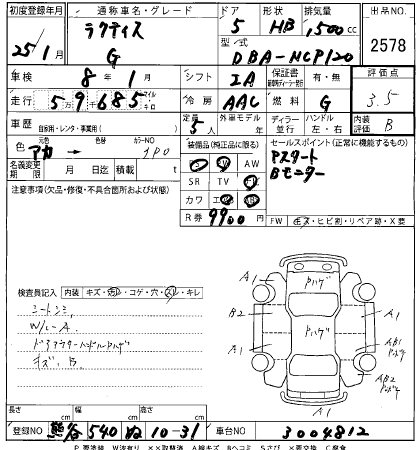 初度登録年月 通称車名・グレード ドア 形状 排気量 出品NO.
25/1月 ラクティス G 5 HB 1,500cc 2578
型式 DBA-NCP120
車検 8年 1月 シフト IA 保証書 有・無 評価点
走行 59千685 マイル キロ 冷房 AAC 燃料 G 3.5
車歴 自家用・レンタ・事業用( ) 定員 5人 外車モデル ディーラー 並行 ハンドル 左・右 内装評価 B
色 元色 アカ → 色替 カラーNO 3P0
名義変更期限 月 日迄 積載 t
装備品(純正品に限る)
PS PW AW
SR TV
カワ
R券 9900
セールスポイント(正常に機能するもの)
Pスタート
Bモニター
注意事項(欠品・修復・不具合箇所および状態)
FW キズ・ヒビ割・リペア跡・X要
検査員記入 内装 キズ・汚レ・コゲ・穴・スレ・キレ
シートシミ
W/C-A
ドアアウターハンドルPハゲ
キズ、B
A1 Pハゲ
B2 A1
A1 Pハゲ AB1
AB2
A1
長さ cm 幅 cm 高さ cm
登録NO 熊谷 540 ぬ 10-31 車台NO 3004812
P 要塗装 W波有り ××取替済 A線キズ Bヘコミ Sさび ×要交換 C腐食